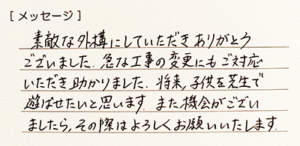 [メッセージ]
素敵な外構にしていただきありがとう
ございました。急な工事の変更にもご対応
いただき助かりました。将来、子供を芝生で
遊ばせたいと思います。また機会がござい
ましたら、その際はよろしくお願いいたします。